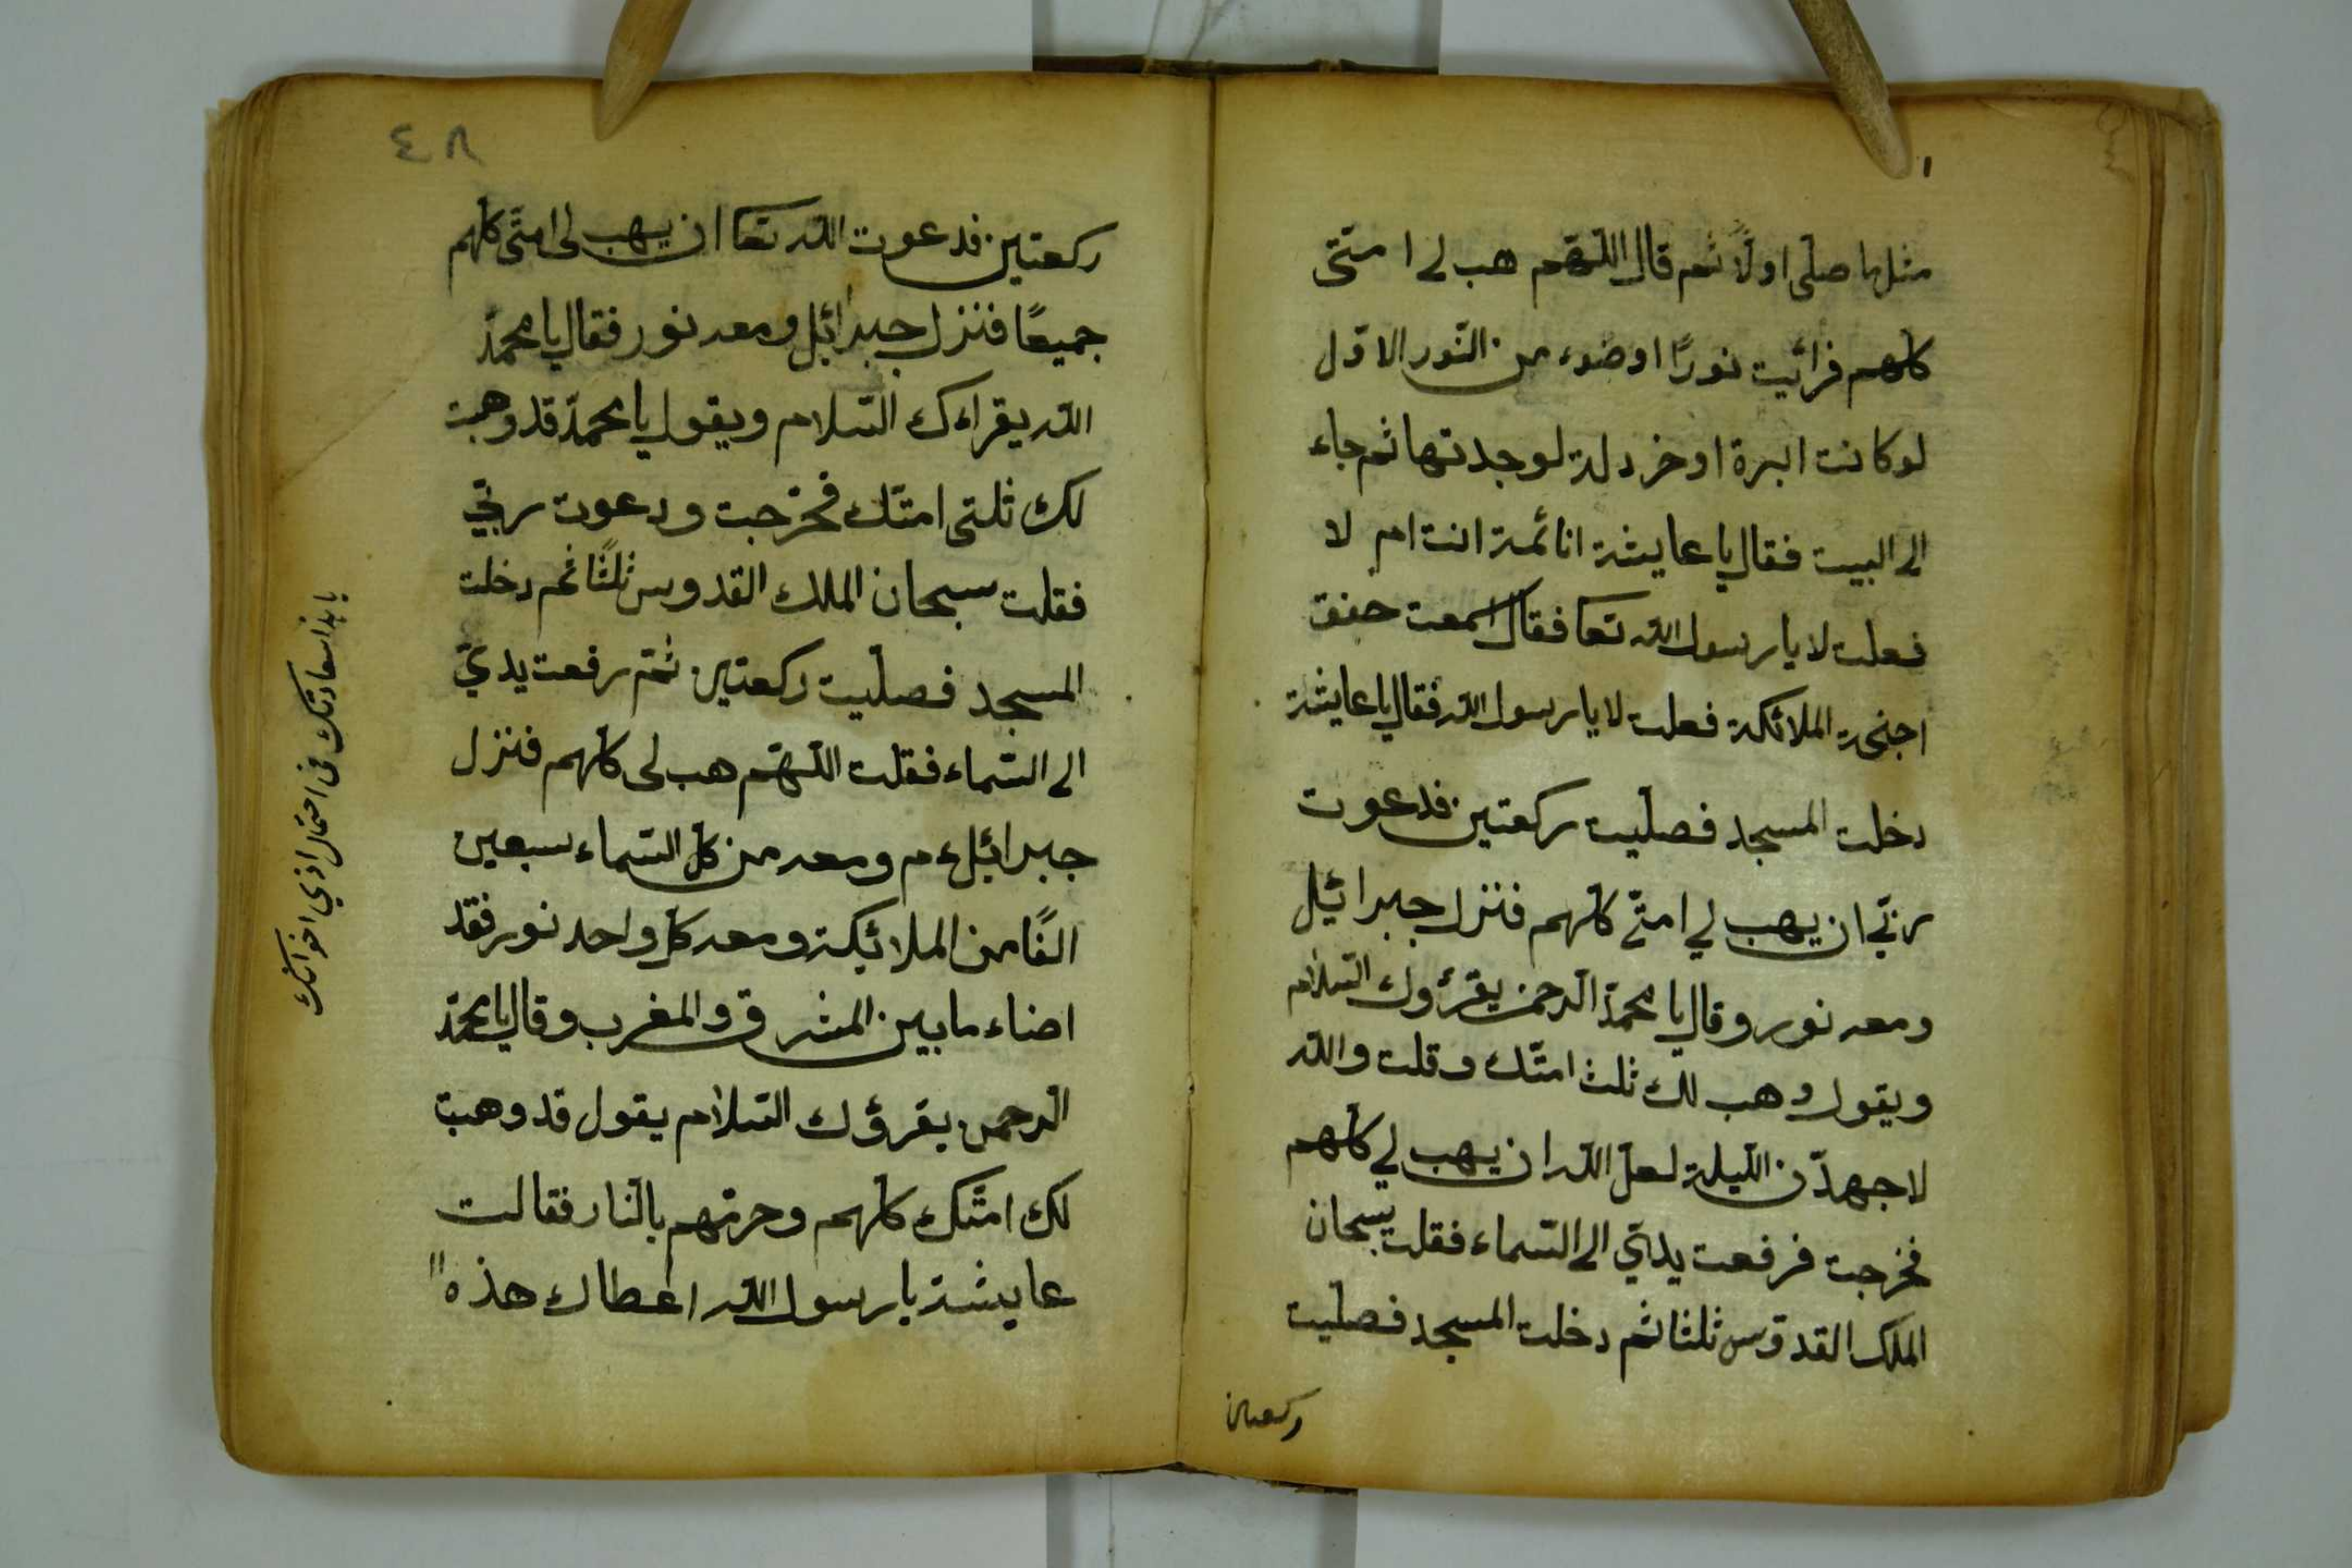 مثل ما صلى اولًا ثم قال اللّهم هب لى امتى
كلهم فرائيت نورًا اوضوء من النّور الاوّل
لو كانت ابرة او خردلة لوجدتها ثم جاء
الى البيت فقال يا عايشة انائمة انت ام لا
فعلت لا يا رسول الله تعا فقال اسمعت حنق
اجنحة الملائكة فعلت لا يا رسول الله فقال يا عايشة
دخلت المسجد فصليت ركعتين فدعوت
ربّى ان يهب لي امتّى كلهم فنزل جبرائيل
ومعه نور وقال يا محمّد الرحمن يقرؤك السّلام
ويقول وهب لك ثلث امتّك وقلت والله
لاجهدّن اللّيلة لعل الله ان يهب لي كلهم
فخرجت فرفعت يديّ الى السّماء فقلت سبحان
الملك القدوّس ثلثا ثم دخلت المسجد فصليت
ركعتين
٤٨
ركعتين فدعوت الله تعا ان يهب لى امتّى كلهم
جميعًا فنزل جبرائيل ومعه نور فقال يا محمّد
الله يقراءك السّلام ويقول يا محمدّ قد وهبت
لك ثلثى امتّك فخرجت ودعوت ربّي
فقلت سبحان الملك القدوس ثلثًا ثم دخلت
المسجد فصليت ركعتين ثمّ رفعت يديّ
الى السّماء فقلت اللّهمّ هب لى كلهم فنزل
جبرائيل ءم ومعه من كل السّماء سبعين
الفًا من الملائيكة ومعه كل واحد نور فقد
اضاء ما بين المشرق والمغرب وقال يا محمّد
الرحمن يقرؤك السّلام يقول قد وهبت
لك امتّك كلهم وحرمتهم بالنّار فقالت
عايشة يا رسول الله اعطاك هذه
يا هذا سعادتك فى احتمال اذي اخوانك